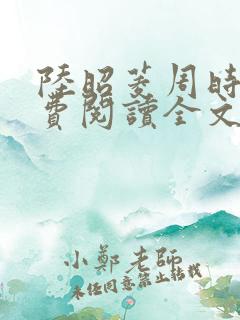 陸昭菱周時
費閱讀全文
小鄭老師
未經同意禁止轉載